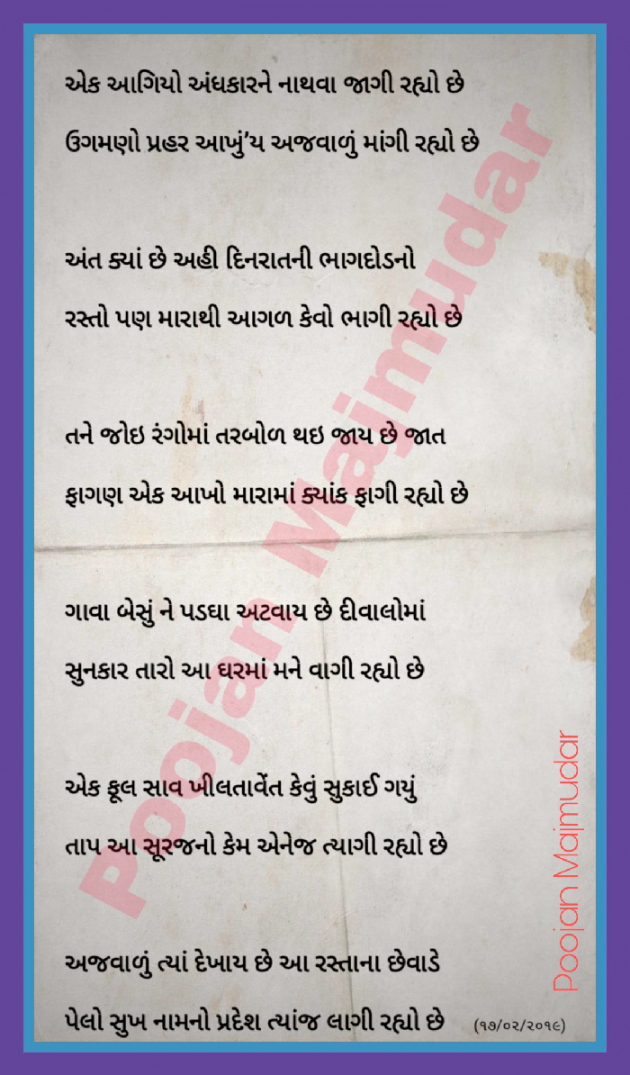 એક આગિયો અંધકારને નાથવા જાગી રહ્યો છે
ઉગમણો પ્રહર આખું'ય અજવાળું માંગી રહ્યો છે
અંત ક્યાં છે અહી દિનરાતની ભાગદોડનો
રસ્તો પણ મારાથી આગળ કેવો ભાગી રહ્યો છે
તને જોઇ રંગોમાં તરબોળ થઇ જાય છે જાત
ફાગણ એક આખો મારામાં ક્યાંક ફાગી રહ્યો છે
ગાવા બેસું ને પડઘા અટવાય છે દીવાલોમાં
સુનકાર તારો આ ઘરમાં મને વાગી રહ્યો છે
એક ફૂલ સાવ ખીલતાવેંત કેવું સુકાઈ ગયું
તાપ આ સૂરજનો કેમ એનેજ ત્યાગી રહ્યો છે
અજવાળું ત્યાં દેખાય છે આ રસ્તાના છેવાડે
પેલો સુખ નામનો પ્રદેશ ત્યાંજ લાગી રહ્યો છે (૧૭/૦૨/૨૦૧૯)
Poojan Majmudar
Poojan Majmudar